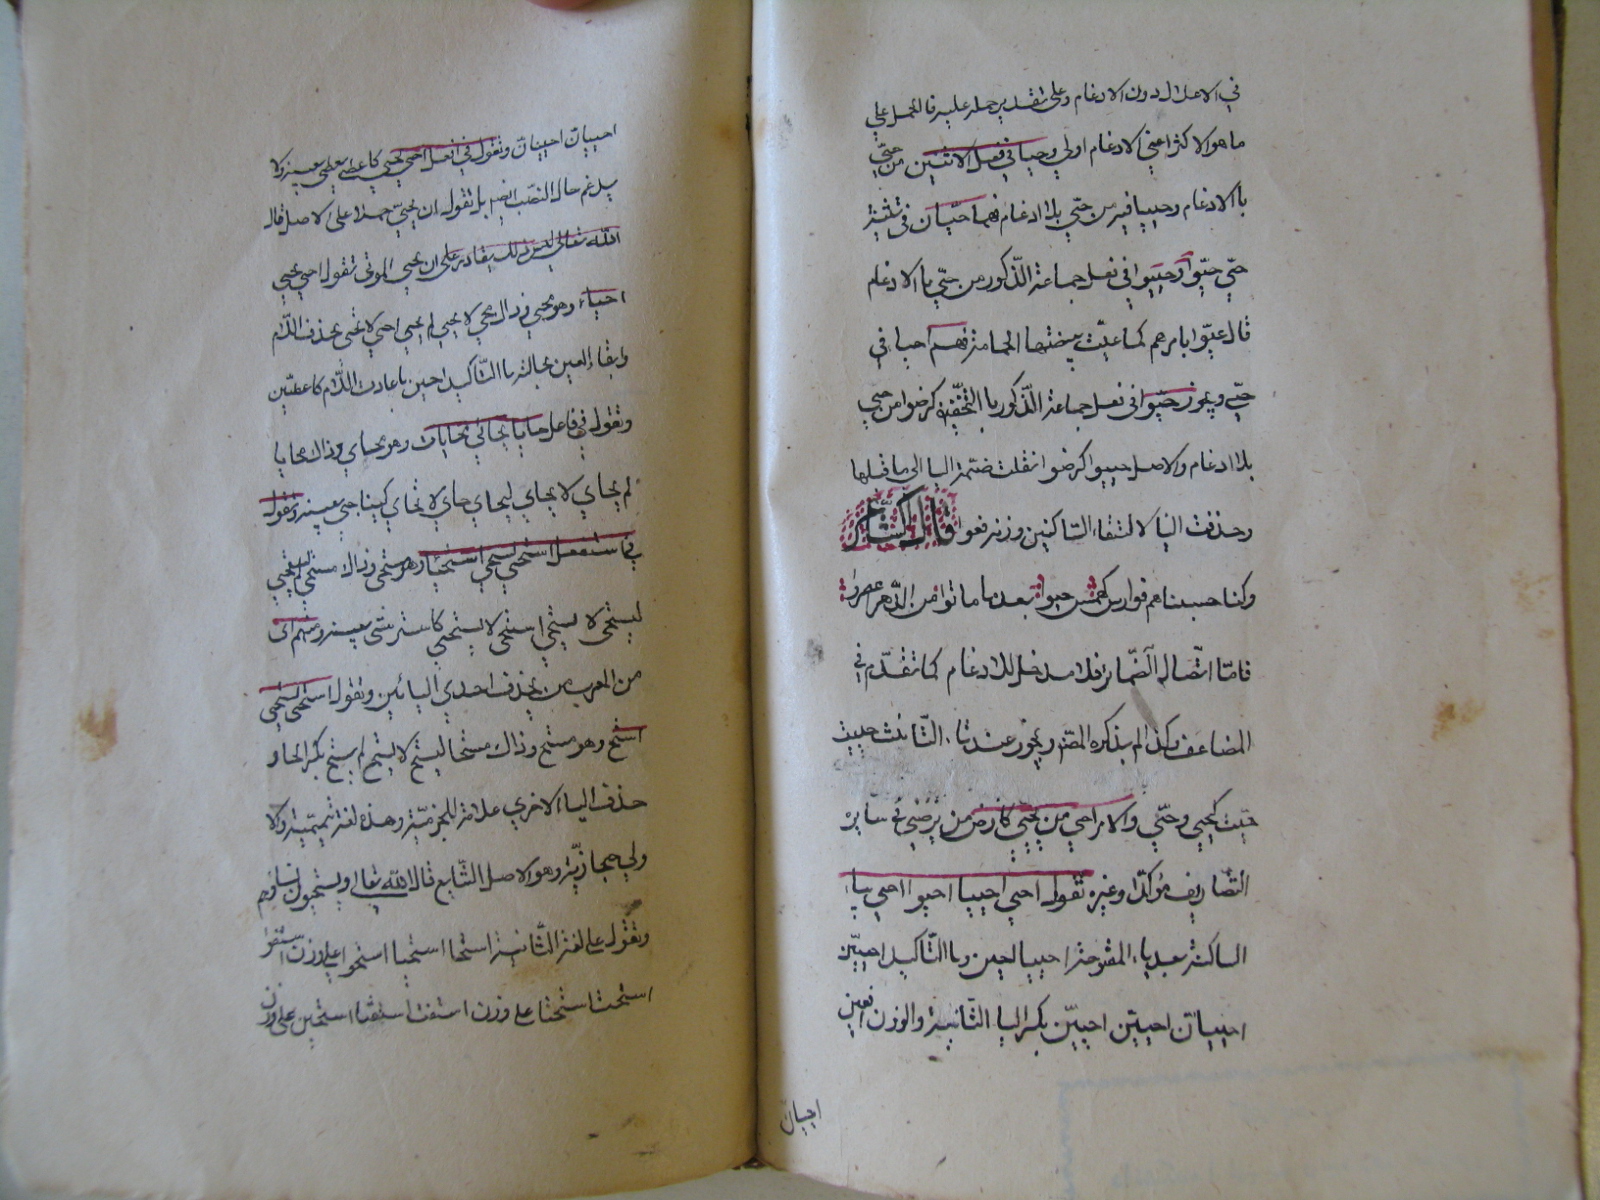 في الاعلال دون الادغام وعلى تقدير حمله عليه فالحمل على
ما هو الاكثر اعني الادغام اولى وحيا في فعل الاثنين من حيّ
باالادغام وحييا فيه من حيي بلا ادغام فهما حيّان في تثنية
حيّ حيّوا وحييوا في فعل جماعة الذّكور من حيّ باالادغام
قال عيّوا بامرهم كما عيّت ببيضتها الحمامة فهم احيا في
حيّ ويجوز حيوا في فعل جماعة الذّكور باالتخفيف كرضوا من حيي
بلا ادغام والاصل حييوا كرضيوا نقلت ضمة اليا الى ما قبلها
وحذفت اليا لالتقاء السّاكنين وزنه فعوا قال الشاعر
وكنا حسبناهم فوارس كهمس حيوا بعد ما ماتوا من الدّهر اعصرا
فامّا اتّصاله الضّماير فلا مدخل للادغام كما تقدّم في
المضاعف ولهذا لم يذكره المصنف ويجوز عند تاء التّانيث حييت
حيّت كحيي وحيّ والامر احي من يحيي كارض من يرضى في ساير
التصّاريف مؤكدّا وغيره تقول احي احييا احيوا احيي بياء
الساكنة بعد ياء المفتوحة احييا احيين وباالتّاكيد احيينّ
احييانّ احيينّ احيينّ بكسر اليا الثّانية والوزن افعين
احييان
احييانّ احيينانّ وتقول في افعل احيى يحيي كاعطى يعطي بعينه ولا
يدغم حال النصّب ايضا بل تقول ان يحيي حملا على الاصل قال
الله تعالى اليس ذلك بقادر على ان يحيي الموتى تقول احيى يحيي
احياء وهو محيي وذاك محيى لا يحيي لم يحيي احيي لا تحيى بحذف اللّام
وابقاء العين بحاله باالتّاكيد احيين باعادت اللّام كاعطينّ
وتقول في فاعل حايا يحايي محايات وهو محايي وذاك محايا
لم يحايي لا يحايي ليحايي حايي لا تحايي كيناجي بعينه وتقول
في استفعل استحيى يستحيي استحياء وهو مستحيي وذاك مستحيى لم يستحيي
ليستحيي لا يستحيي استحيي لا يستحيي كاسترشى بعينه ومنهم اى
من العرب من يحذف احدى اليائين وتقول استحى يستحي
استح وهو مستح وذاك مستحا ليستح لا يستح لم يستح بكسر الحا و
حذف اليا الاخرى علامة للجزميّة وهذه لغة تميميّة والا
ولى حجازيّة وهو الاصل الشّايع قال الله تعالى ويستحيون نساؤهم
وتقول على لغة الثّانية استحا استحيا استحوا على وزن استفوا
استحت استحتا على وزن استفت استفتا استحين على وزن